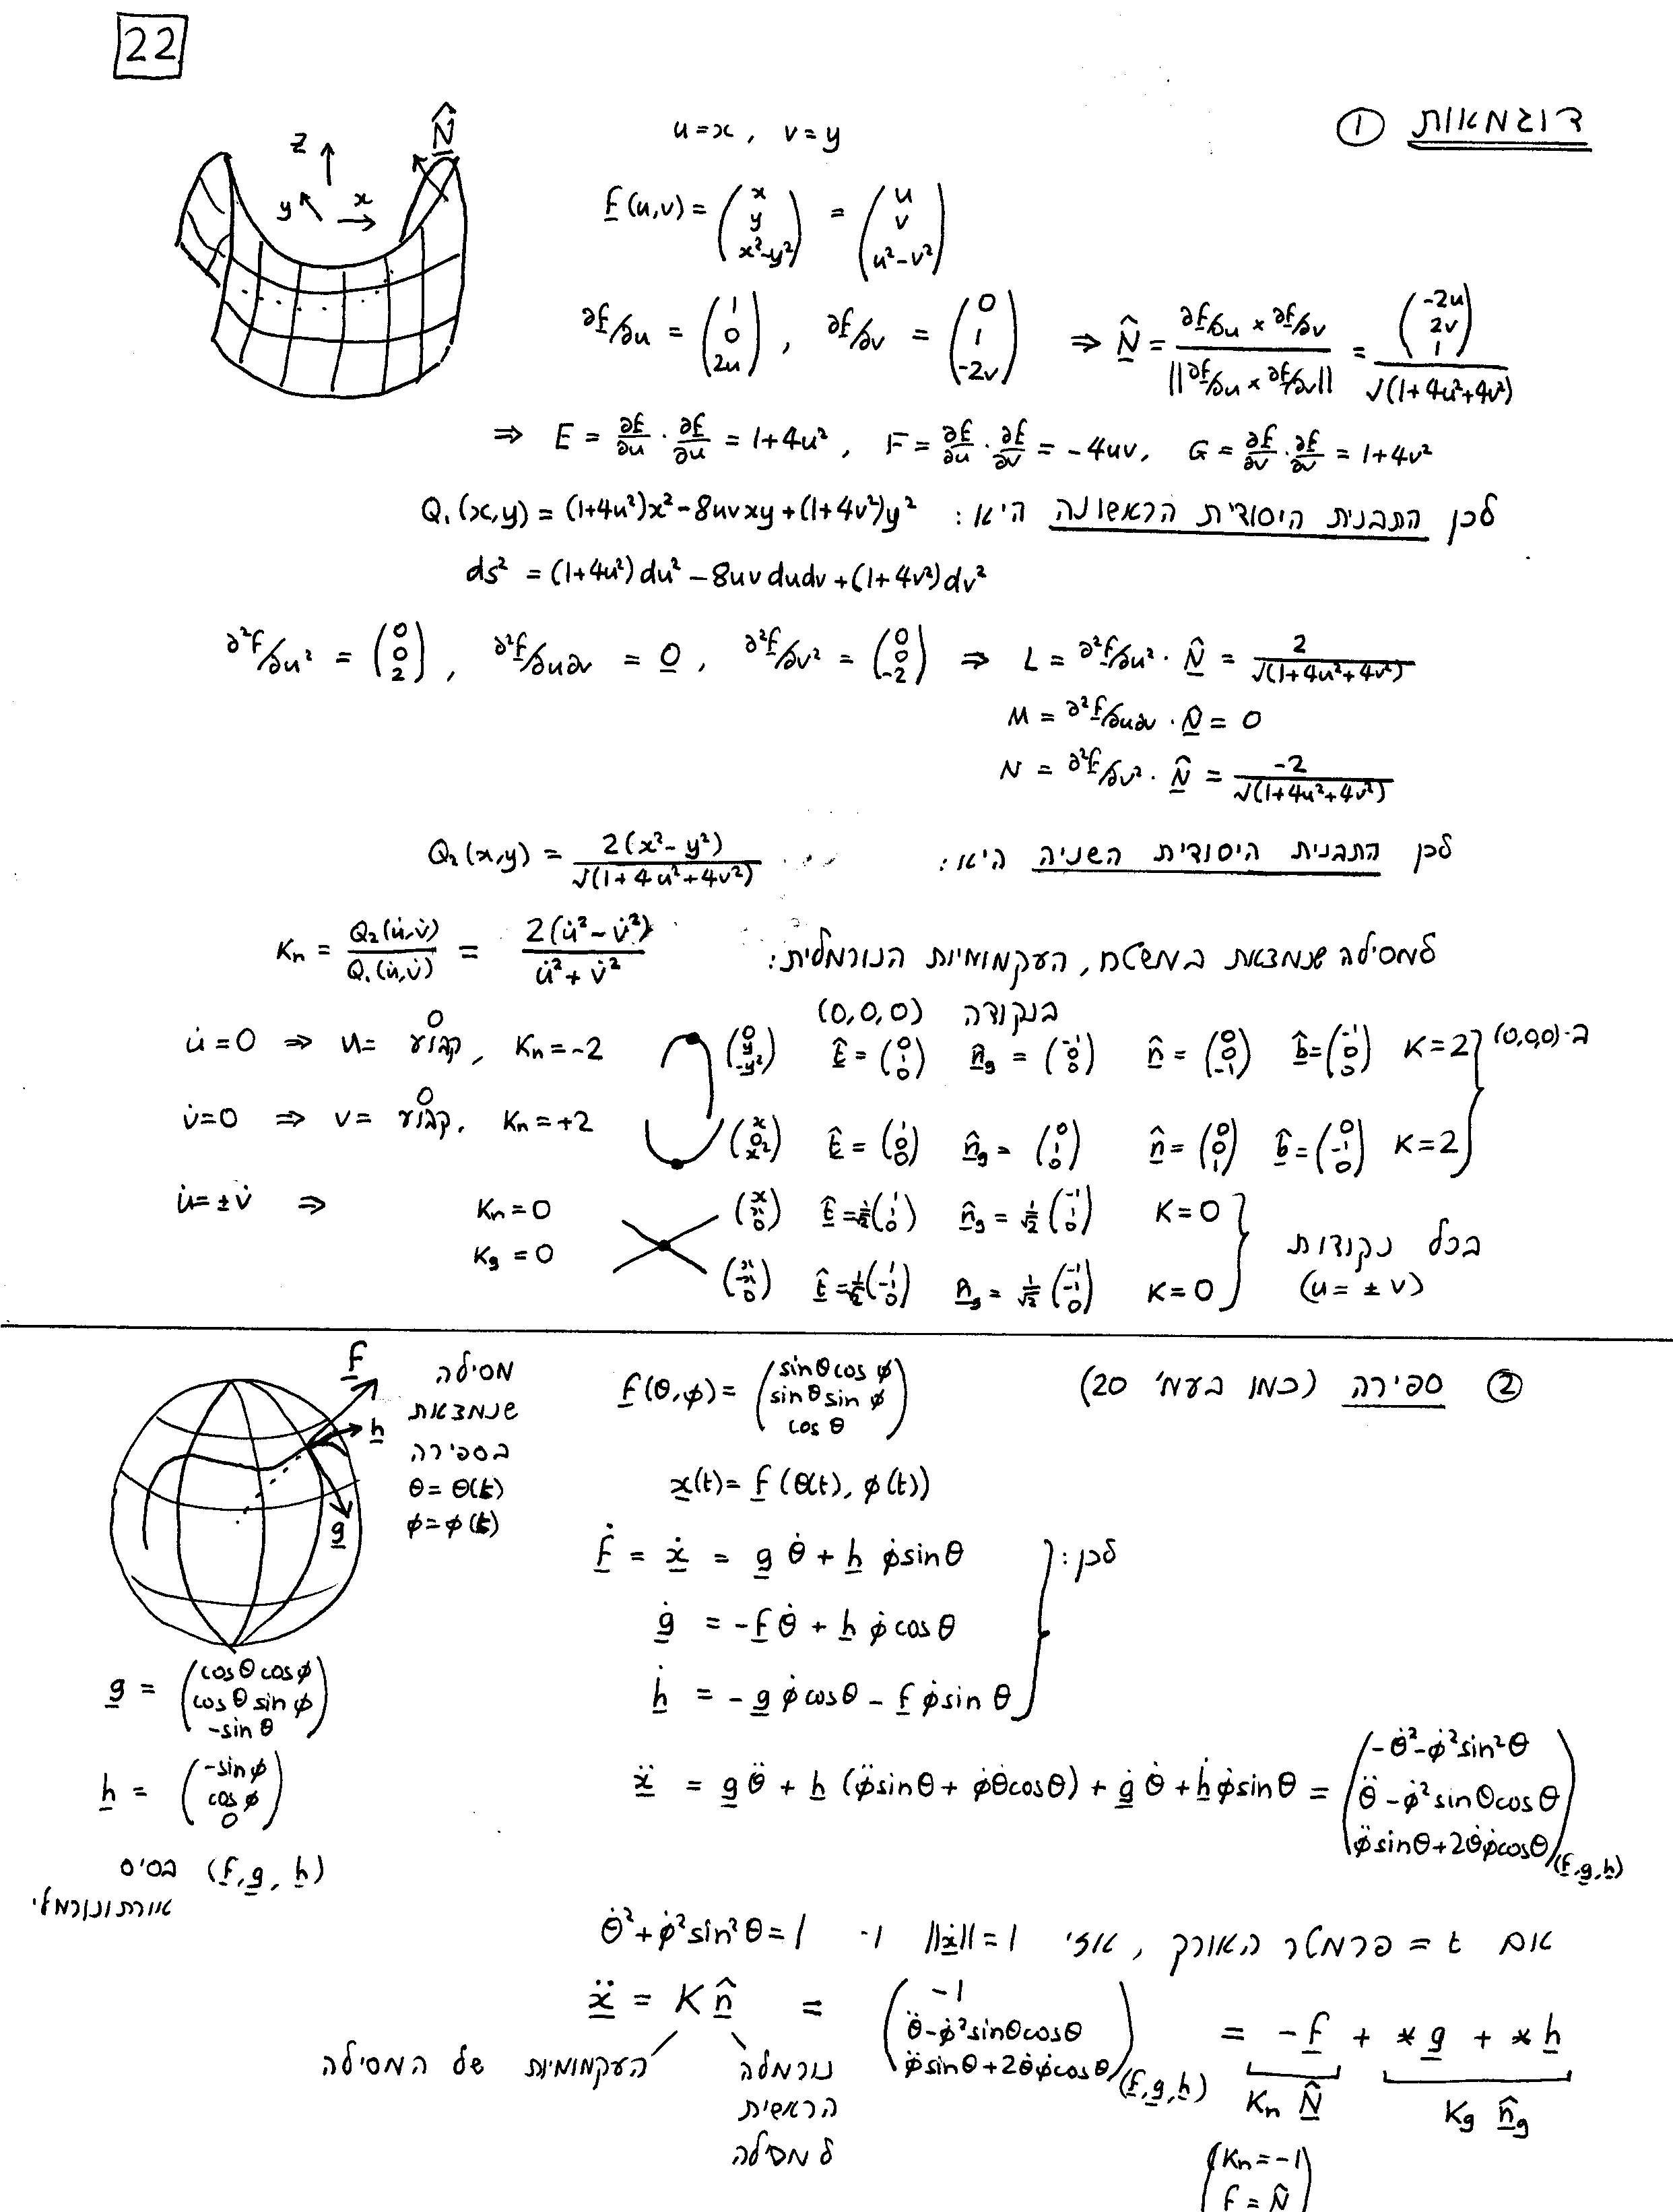 22
דוגמאות ①
z y x N̂
u=x, v=y
f(u,v) = (x, y, x²-y²) = (u, v, u²-v²)
∂f/∂u = (1, 0, 2u), ∂f/∂v = (0, 1, -2v) ⇒ N̂ = (∂f/∂u × ∂f/∂v)/||∂f/∂u × ∂f/∂v|| = (-2u, 2v, 1)/√(1+4u²+4v²)
⇒ E = ∂f/∂u · ∂f/∂u = 1+4u², F = ∂f/∂u · ∂f/∂v = -4uv, G = ∂f/∂v · ∂f/∂v = 1+4v²
לכן התבנית היסודית הראשונה היא: Q₁(x,y) = (1+4u²)x² - 8uvxy + (1+4v²)y²
ds² = (1+4u²)du² - 8uvdudv + (1+4v²)dv²
∂²f/∂u² = (0, 0, 2), ∂²f/∂u∂v = 0, ∂²f/∂v² = (0, 0, -2) ⇒ L = ∂²f/∂u² · N̂ = 2/√(1+4u²+4v²)
M = ∂²f/∂u∂v · N̂ = 0
N = ∂²f/∂v² · N̂ = -2/√(1+4u²+4v²)
לכן התבנית היסודית השניה היא: Q₂(x,y) = 2(x²-y²)/√(1+4u²+4v²)
למסילה שנמצאת במשטח, העקמומיות הנורמלית: Kn = Q₂(u̇,v̇)/Q₁(u̇,v̇) = 2(u̇²-v̇²)/(u̇²+v̇²)
בנקודה (0,0,0)
u̇=0 ⇒ u= קבוע 0, Kn=-2 (0, y, -y²) t̂ = (0, 1, 0) n̂g = (-1, 0, 0) n̂ = (0, 0, -1) b̂ = (-1, 0, 0) K=2 ב-(0,0,0)
v̇=0 ⇒ v= קבוע 0, Kn=+2 (x, 0, x²) t̂ = (1, 0, 0) n̂g = (0, 1, 0) n̂ = (0, 0, 1) b̂ = (0, -1, 0) K=2
u̇=±v̇ ⇒ Kn=0 (x, x, 0) t̂ = 1/√2 (1, 1, 0) n̂g = 1/√2 (-1, 1, 0) K=0 בכל נקודות
Kg=0 (x, -x, 0) t̂ = 1/√2 (1, -1, 0) n̂g = 1/√2 (-1, -1, 0) K=0 (u=±v)
② ספירה (כמו בעמ' 20) f(θ,φ) = (sinθcosφ, sinθsinφ, cosθ)
f h g
מסילה
שנמצאת
בספירה
θ=θ(t)
φ=φ(t)
x(t) = f(θ(t), φ(t))
לכן: ḟ = ẋ = g θ̇ + h φ̇sinθ
ġ = -f θ̇ + h φ̇cosθ
ḣ = -g φ̇cosθ - f φ̇sinθ
g = (cosθcosφ, cosθsinφ, -sinθ)
h = (-sinφ, cosφ, 0)
(f, g, h) בסיס
אורתונורמלי
ẍ = g θ̈ + h (φ̈sinθ + φ̇θ̇cosθ) + ġ θ̇ + ḣ φ̇sinθ = (-θ̇²-φ̇²sin²θ, θ̈-φ̇²sinθcosθ, φ̈sinθ+2θ̇φ̇cosθ)(f,g,h)
אם t = פרמטר האורך, אזי ||ẋ||=1 ו- θ̇²+φ̇²sin²θ=1
ẍ = K n̂ = (-1, θ̈-φ̇²sinθcosθ, φ̈sinθ+2θ̇φ̇cosθ)(f,g,h) = -f + *g + *h
העקמומיות של המסילה
נורמלה
הראשית
למסילה
Kn N̂ Kg n̂g
(Kn=-1
f=N̂)